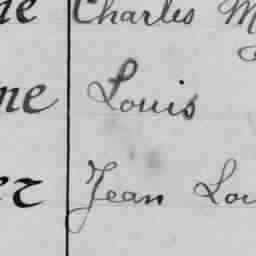 ne Charles M
ne Louis
er Jean Lou